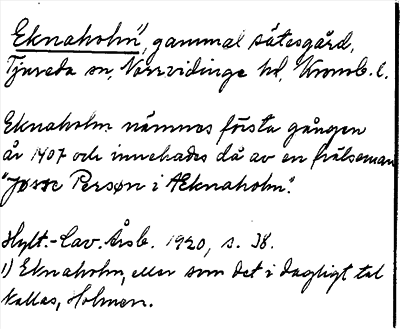 Eknaholm¹⁾, gammal sätesgård,
Tjureda sn, Norrvidinge hd, Kronob. l.
Eknaholm nämnes första gången
år 1407 och innehades då av en frälseman
"Jösse Persøn i Æknaholm".
Hylt.-Cav. Årsb. 1920, s. 38.
1) Eknaholm, eller som det i dagligt tal
kallas, Holmen.